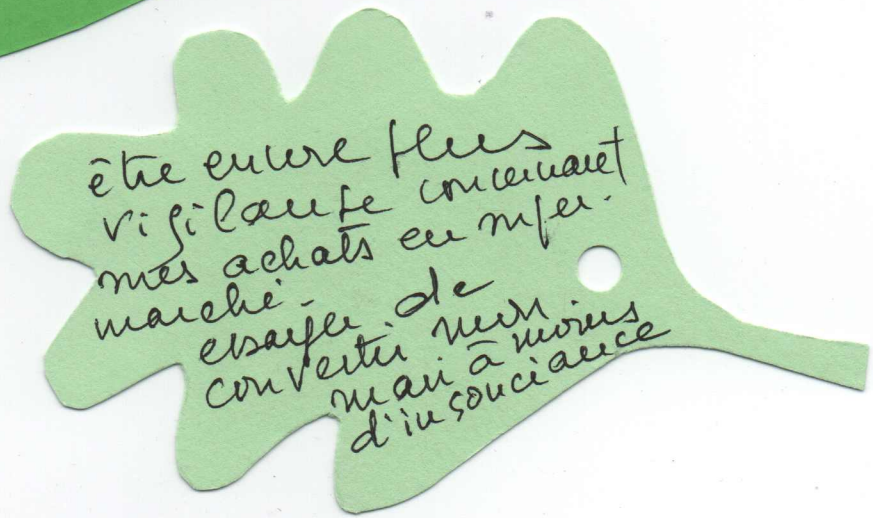 être encore plus
vigilante concernant
mes achats en super-
marché.
essayer de
convertir mon
mari à moins
d'insouciance